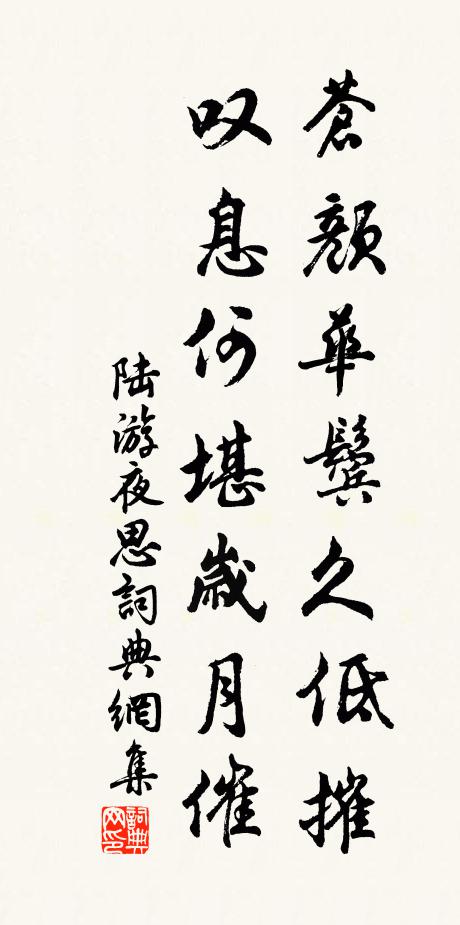 蒼顏華鬓久低摧
叹息何堪歲月催
陆游夜思詞典網集
詞典网印